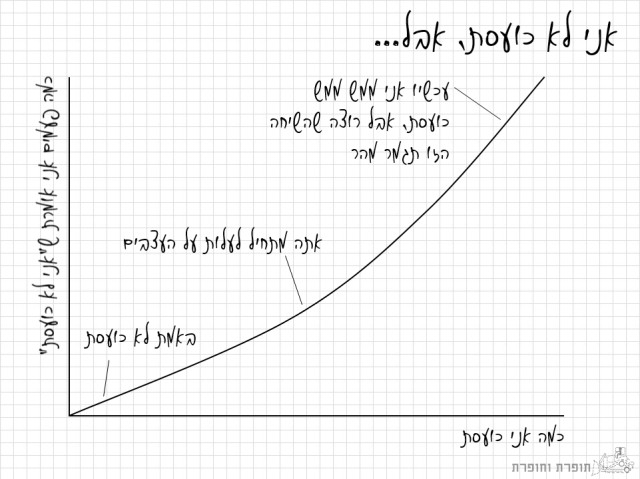 אני לא כועסת, אבל...
כמה פעמים אני אומרת ש"אני לא כועסת"
עכשיו אני ממש ממש
כועסת, אבל רוצה שהשיחה
הזו תגמר מהר
אתה מתחיל לעלות על העצבים
באמת לא כועסת
כמה אני כועסת
תופרת וחופרת